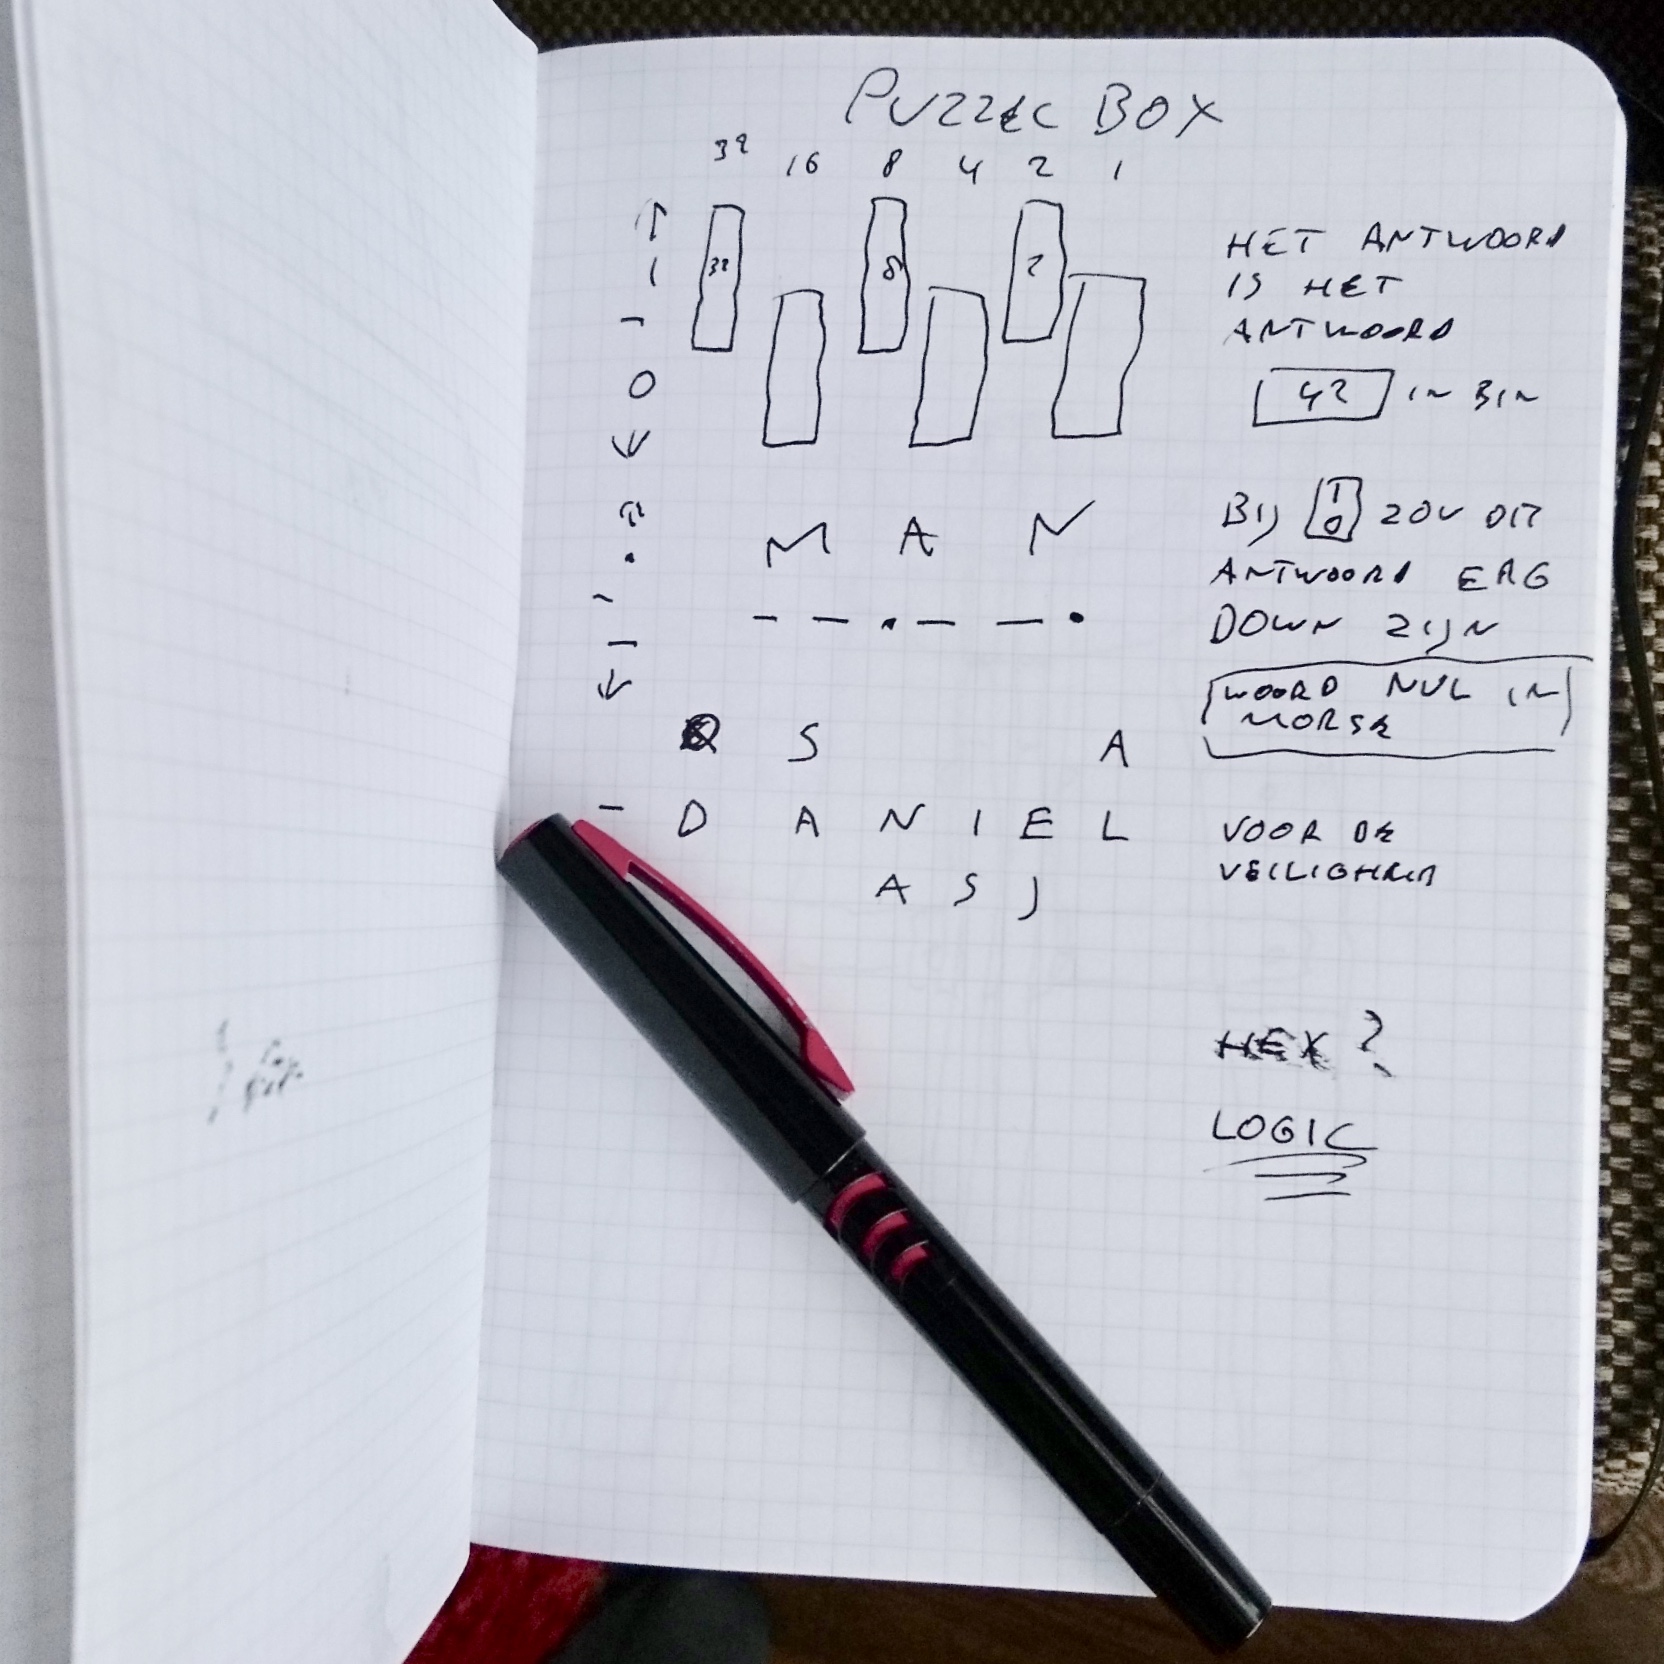 PUZZLE BOX
32 16 8 4 2 1
32 8 2
1
0
HET ANTWOORD
IS HET
ANTWOORD
42 IN BIN
M A N
— — • — — •
BIJ 1 0 ZOU DIT
ANTWOORD ERG
DOWN ZIJN
WOORD NUL IN
MORSE
S A
D A N I E L
A S J
VOOR DE
VEILIGHEID
HEX ?
LOGIC